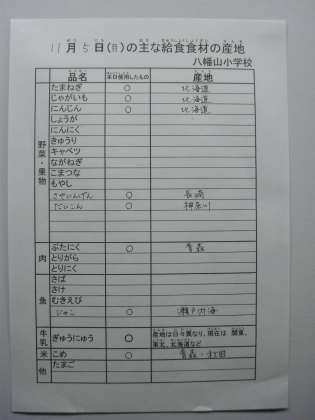 11月5日(日)の主な給食食材の産地
八幡山小学校
品名 本日使用したもの 産地
野菜・果物
たまねぎ ○ 北海道
じゃがいも ○ 北海道
にんじん ○ 北海道
しょうが
にんにく
きゅうり
キャベツ
ながねぎ
こまつな
もやし
さやいんげん ○ 長崎
だいこん ○ 神奈川
肉
ぶたにく ○ 青森
とりがら
とりにく
魚
さば
さけ
むきえび
ジャコ ○ 瀬戸内海
牛乳 ぎゅうにゅう ○ 産地は日々異なり、現在は 関東、
東北、北海道など
米 こめ ○ 青森・秋田
他 たまご